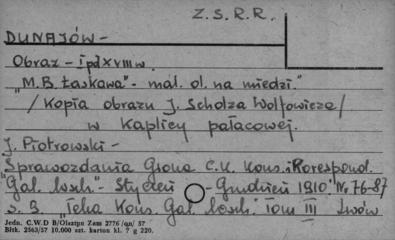 Z.S.R.R.
DUNAJÓW -
Obraz - I pd XVIII w.
"M.B. Łaskawa" - mal. ol. na miedzi."
/ Kopia obrazu J. Scholza Wolfowicza /
w kaplicy pałacowej.
J. Piotrowski -
Sprawozdania Grona C.K. Kons. i Korespond.
"Gal. wsch." - Styczeń - Grudzień 1910. Nr 76-87
s. 3. "Teka Kons. Gal. wsch." tom III Lwów
Jedn. C.W D B/Olsztyn Zam 2776 /qn/ 57
Błtk. 2563/57 10.000 szt. karton kl. 7 g 220.